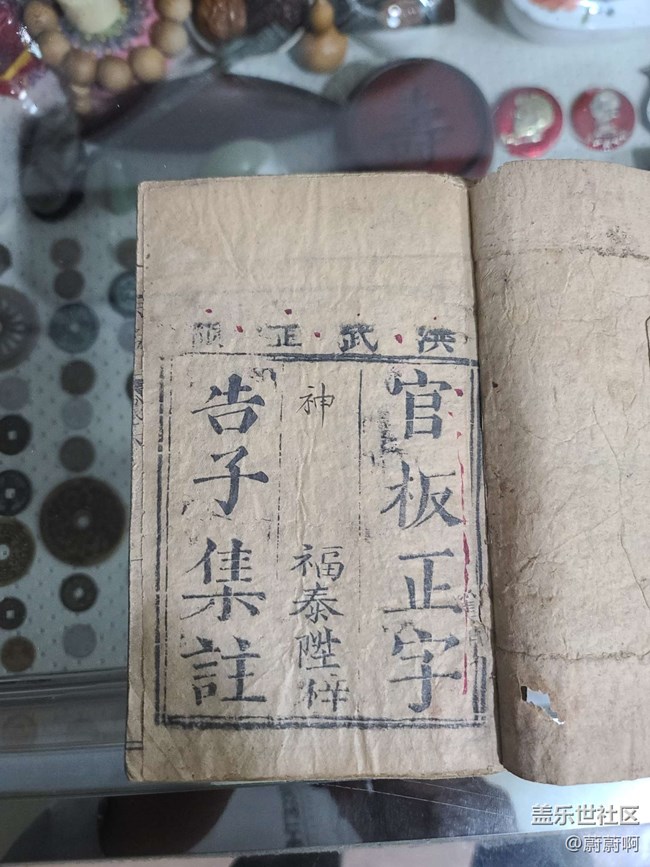 洪武正
官板正字
神
福泰陞梓
告子集註
盖乐世社区
@蔚蔚啊